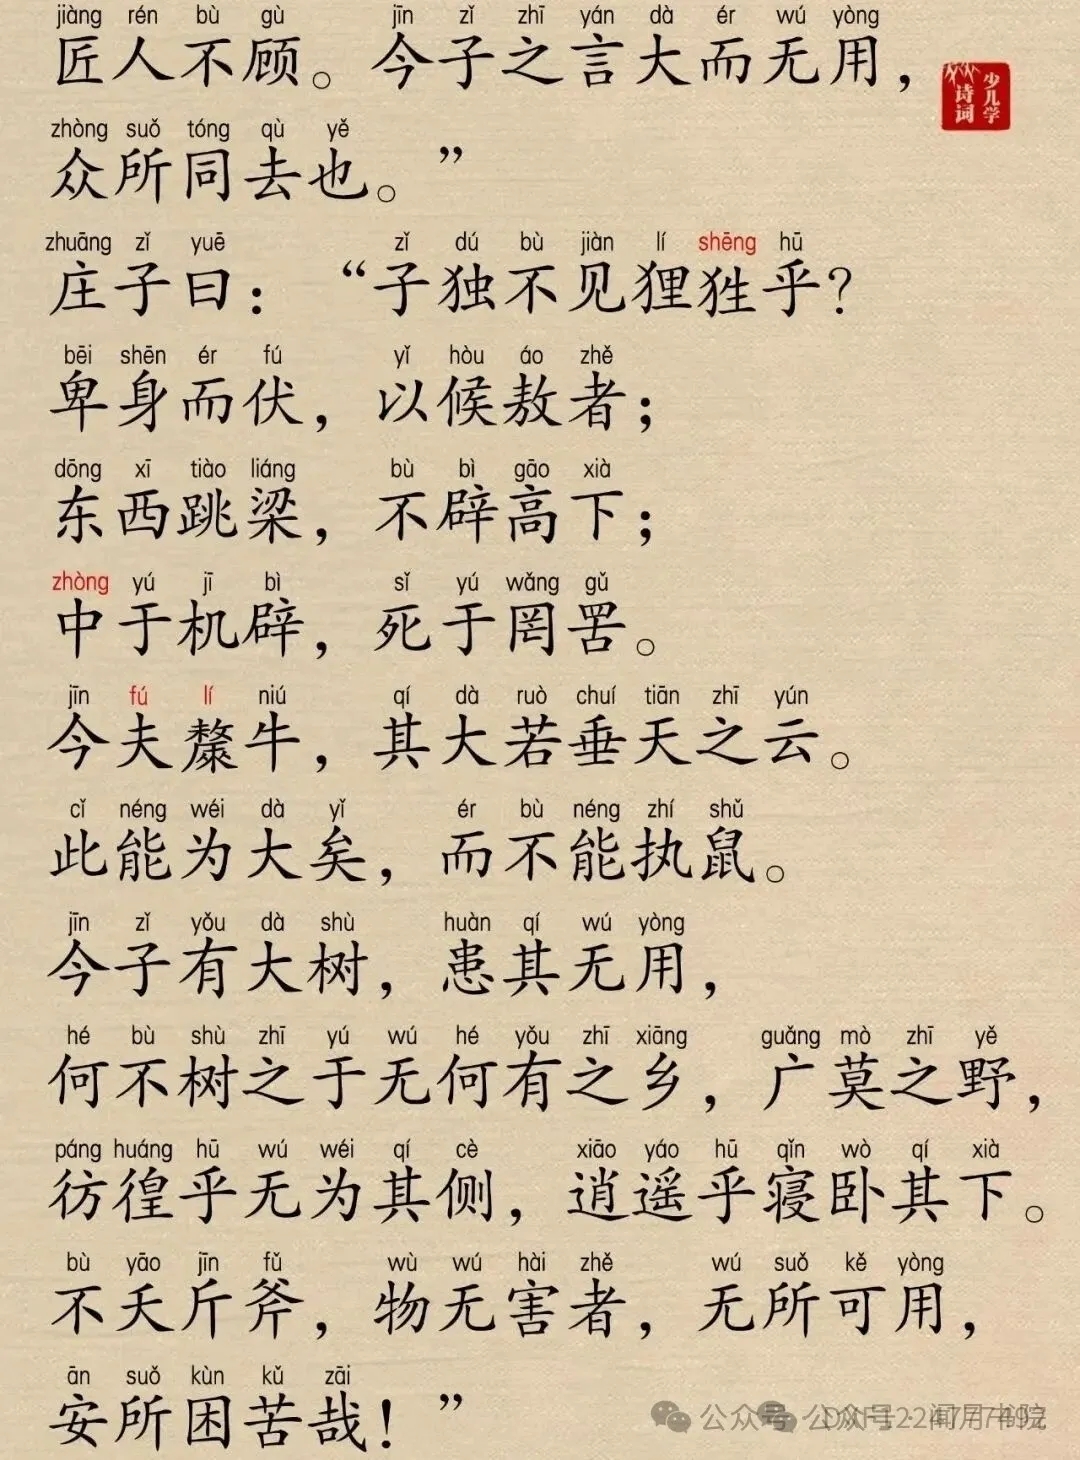 jiàng rén bù gù jīn zǐ zhī yán dà ér wú yòng
匠人不顾。今子之言大而无用，
少儿学诗词
zhòng suǒ tóng qù yě
众所同去也。”
zhuāng zǐ yuē zǐ dú bù jiàn lí shēng hū
庄子曰：“子独不见狸狌乎？
bēi shēn ér fú yǐ hòu áo zhě
卑身而伏，以候敖者；
dōng xī tiào liáng bù bì gāo xià
东西跳梁，不辟高下；
zhòng yú jī bì sǐ yú wǎng gǔ
中于机辟，死于罔罟。
jīn fú lí niú qí dà ruò chuí tiān zhī yún
今夫斄牛，其大若垂天之云。
cǐ néng wéi dà yǐ ér bù néng zhí shǔ
此能为大矣，而不能执鼠。
jīn zǐ yǒu dà shù huàn qí wú yòng
今子有大树，患其无用，
hé bù shù zhī yú wú hé yǒu zhī xiāng guǎng mò zhī yě
何不树之于无何有之乡，广莫之野，
páng huáng hū wú wéi qí cè xiāo yáo hū qǐn wò qí xià
彷徨乎无为其侧，逍遥乎寝卧其下。
bù yāo jīn fǔ wù wú hài zhě wú suǒ kě yòng
不夭斤斧，物无害者，无所可用，
ān suǒ kùn kǔ zāi
安所困苦哉！”
公众号 公众号